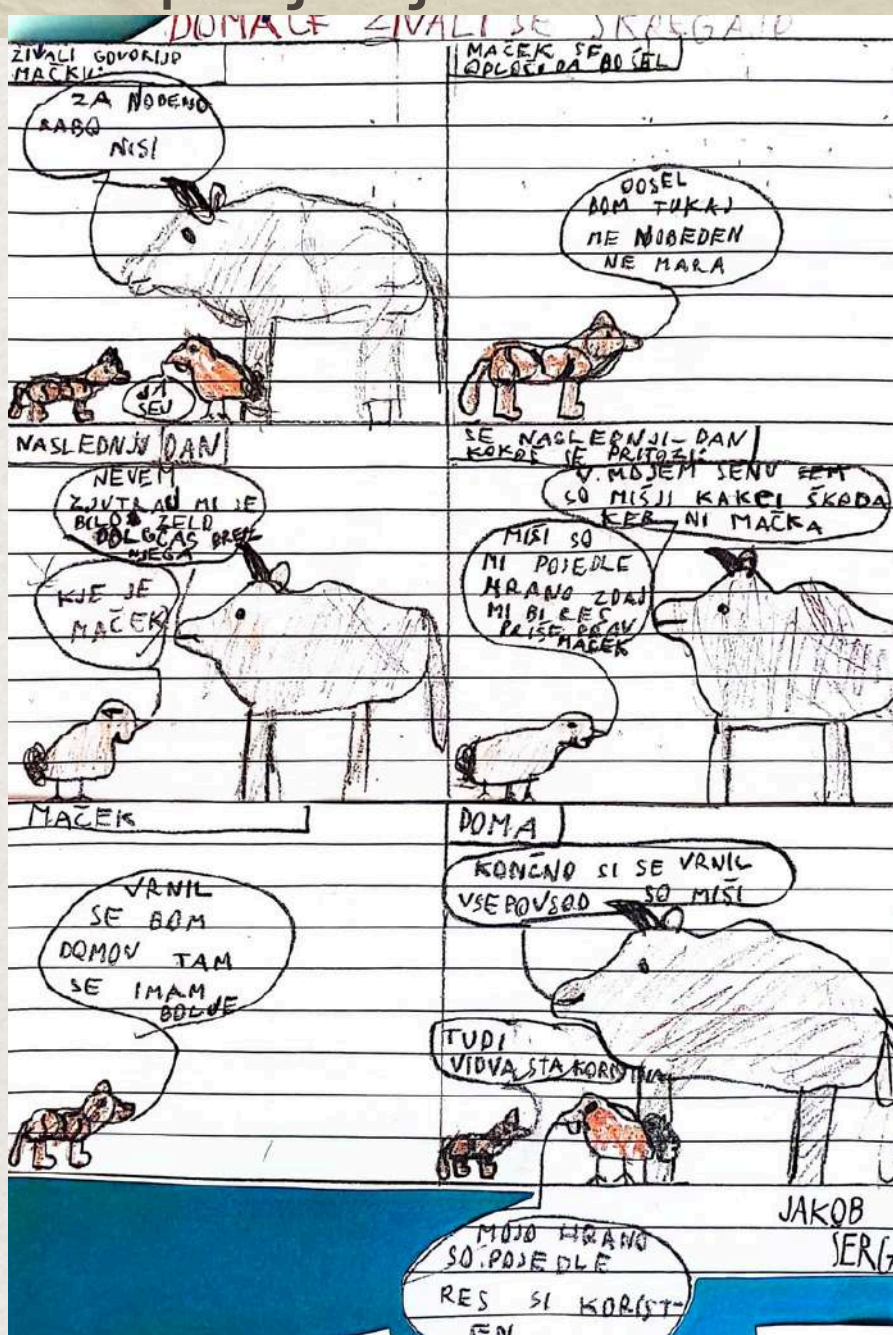 DOMAČE ŽIVALI SE SKREGAJO
ŽIVALI GOVORIJO
MAČKU:
ZA NOBENO
RABO
NISI
JA
SEV
MAČEK SE
ODLOČI DA BO ŠEL
ODŠEL
BOM TUKAJ
ME NOBEDEN
NE MARA
NASLEDNJI DAN
NEVEM
ZJUTRAJ MI JE
BILO ZELO
DOLGČAS BREZ
NJEGA
KJE JE
MAČEK
ŠE NASLEDNJI DAN
KOKOŠ SE PRITOŽI:
V MOJEM SENU
SO MIŠJI KAKCI ŠKODA
KER NI MAČKA
MIŠI SO
MI POJEDLE
HRANO ZDAJ
MI BI RES
PRIŠE PRAV
MAČEK
MAČEK
VRNIL
SE BOM
DOMOV TAM
SE IMAM
BOLJE
DOMA
KONČNO SI SE VRNIL
VSEPOVSOD SO MIŠI
TUDI
VIDVA STA KORISTNA
JAKOB
SERG
MOJO HRANO
SO POJEDLE
RES SI KORIST-
EN